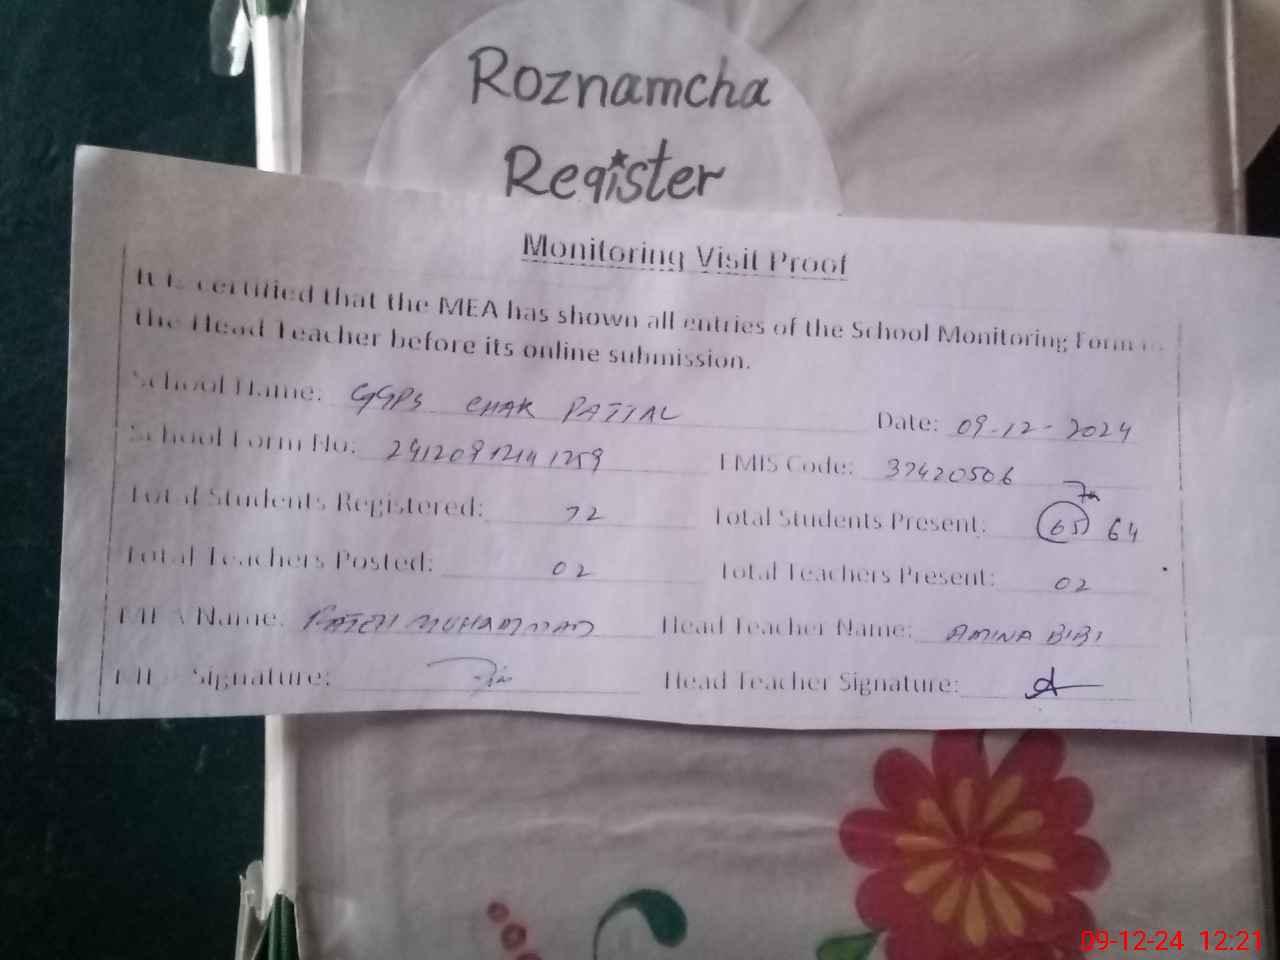 Roznamcha
Register
Monitoring Visit Proof
It is certified that the MEA has shown all entries of the School Monitoring Form to
the Head Teacher before its online submission.
School Name: GGPS CHAK PATTAL
Date: 09-12-2024
School Form No: 
EMIS Code: 37420506
Total Students Registered: 72
Total Students Present: 65 64
Total Teachers Posted: 02
Total Teachers Present: 02
MEA Name: FATEH MUHAMMAD
Head Teacher Name: AMINA BIBI
MEA Signature:
Head Teacher Signature:
09-12-24 12:21